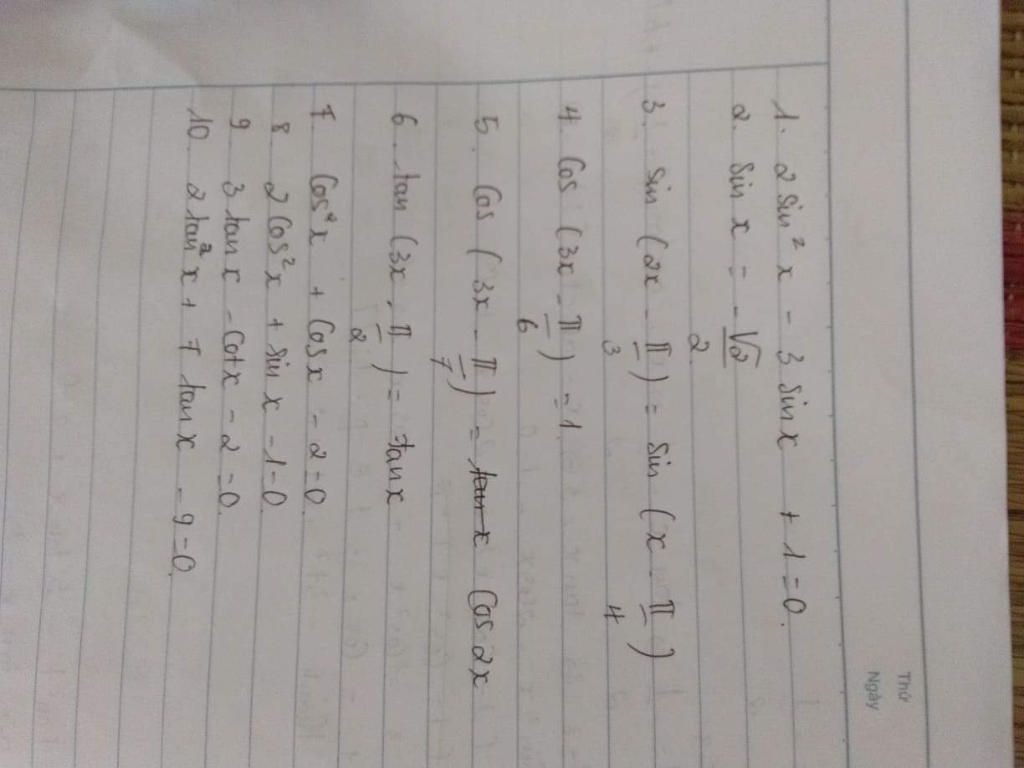 Thứ
Ngày
1. 2 sin² x - 3 sin x + 1 = 0.
2. sin x = - √2/2
3. sin (2x - π/3) = sin (x - π/4)
4. Cos (3x - π/6) = 1
5. Cos (3x - π/7) = tan x Cos 2x
6. tan (3x - π/2) = tan x
7. Cos² x + Cos x - 2 = 0
8. 2 Cos² x + sin x - 1 = 0
9. 3 tan x - Cot x - 2 = 0
10. 2 tan² x + 7 tan x - 9 = 0.